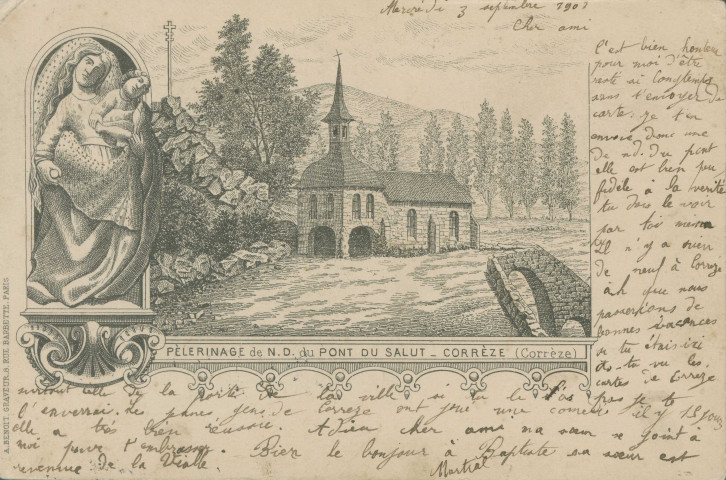 Mercredi 3 septembre 1901
Cher ami
C'est bien honteux
pour moi d'être
resté si longtemps
sans t'envoyer de
carte. je t'en
envoie donc une
de n.d. du pont
elle est bien peu
fidèle a la verité
tu dois le voir
par toi même
il n'y a rien
de neuf à Correze
ah que nous
passerions de
bonnes vacances
si tu étais ici
As-tu vu les
cartes de Correze
surtout celle de la porte de la ville si tu le l'as pas je te
l'enverrai. Les jeunes gens de Correze ont joué une comedie il y 15 jours
elle a très bien reussie. Adieu cher ami ma sœur se joint à
moi pour t'embrasser. Bien le bonjour à Baptiste sa sœur est
revenue de la Vialle.
Martial
PÈLERINAGE de N.D. du PONT DU SALUT _ CORRÈZE (Corrèze)
A. BENOIT, GRAVEUR, 8, RUE BARBETTE, PARIS